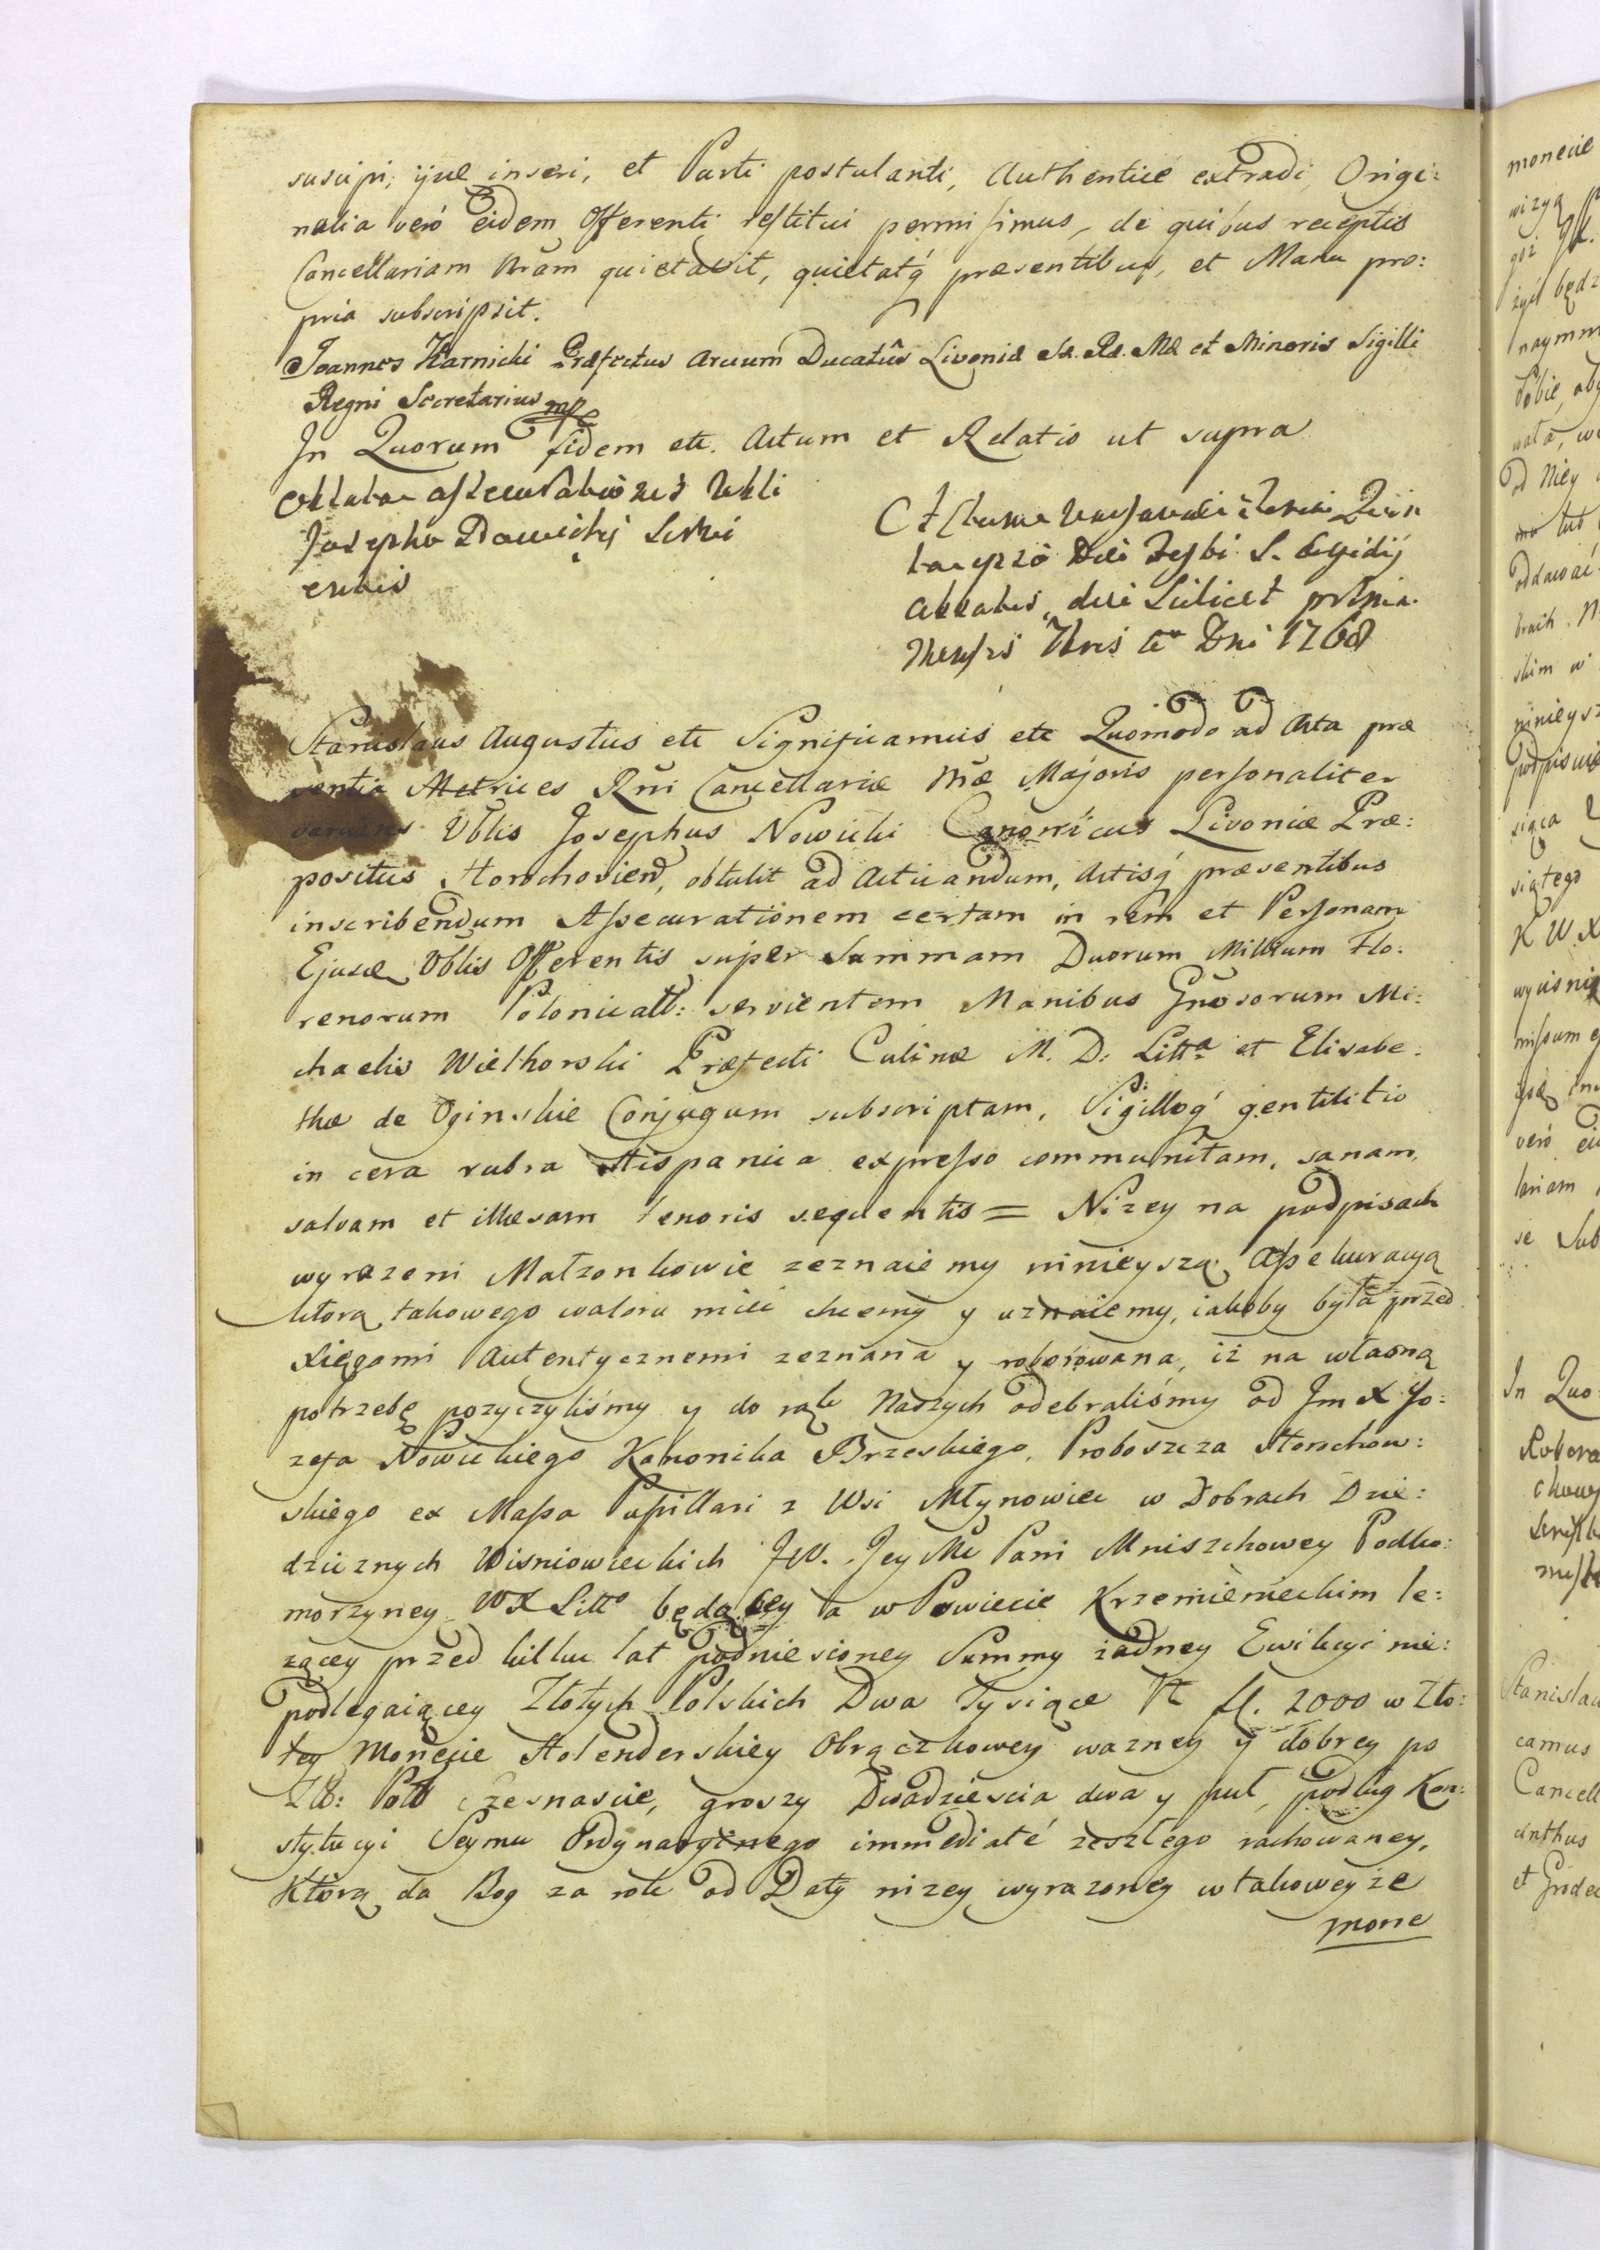 suscipi, ijsqe inseri, et Parti postulanti, Authenticé extradi, Origi:
nalia veró eidem Offerenti restitui permisimus, de quibus receptis
Cancellariam Nram quietavit, quietatq́ præsentibus, et Manu pro:
pria subscripsit.
Joannes Karnicki Præfectus Arcium Ducatûs Livoniæ Sæ. Ræ. Mtis et Minoris Sigilli
Regni Secretarius mp
In Quorum fidem etc. Actum et Relatio ut supra
Oblata assecurationis Vbli
Josepho Nowickij servi
entis
Actum Varsaviæ Feria Quin
ta ipso die Festi S. Egidij
Abbatis, die scilicet prima
Mensis 7bris Ao Dni 1768
Stanislaus Augustus etc Significamus etc Quomodo ad Acta præ
sentia Metrices Rni Cancellariæ Nræ Majoris personaliter
veniens Vblis Josephus Nowicki Canonicus Livoniæ Præ:
positus Horochovien, obtulit ad Acticandum, Actisq́ præsentibus
inscribendum Assecurationem certam in rem et Personam
Ejusde Vblis Offerentis super Summam Duorum Millium Flo:
renorum Polonicall: servientem Manibus Gnosorum Mi:
chaelis Wielhorski Præfecti Culinæ M. D: Litta et Elisabe:
thæ de Oginskie Conjugum subscriptam, Sigilloq́ gentilitio
in cera rubra Hispanica expresso communitam, sanam,
salvam et illæsam tenoris sequentis = Nizey na podpisach
wyrazeni Małzonkowie zeznaiemy ninieyszą Assekuracyą
ktorą takowego waloru mieć chcemy y uznaiemy, iakoby była przed
Xięgami Autentycznemi zeznana y roborowana, iż na własną
potrzebę pozyczyliśmy y do rąk Naszych odebraliśmy od Jm X Jo:
zefa Nowickiego Kanonika Brzeskiego, Proboszcza Horochow:
skiego ex Massa Pupillari z Wsi Młynowiec w Dobrach Dzie:
dzicznych Wisniowieckich JW. Jey Mć Pani Mniszchowey Podko:
morzyney WX Litto będącey a w Powiecie Krzemienieckim le:
zącey przed kilku lat podniesioney Summy żadney Ewikcyi nie:
podlegaiącey Złotych Polskich Dwa Tysiące N fl. 2000 w Zło:
tey Monecie Holenderskiey Obrączkowey wazney y dobrey po
Zł: Pol Szesnascie, groszy Dwadziescia dwa y puł, podług Kon:
stytucyi Seymu Ordynaryinego immediaté zeszłego rachowaney,
Ktorą da Bog za rok od Daty nizey wyrazoney w takoweyże
mone